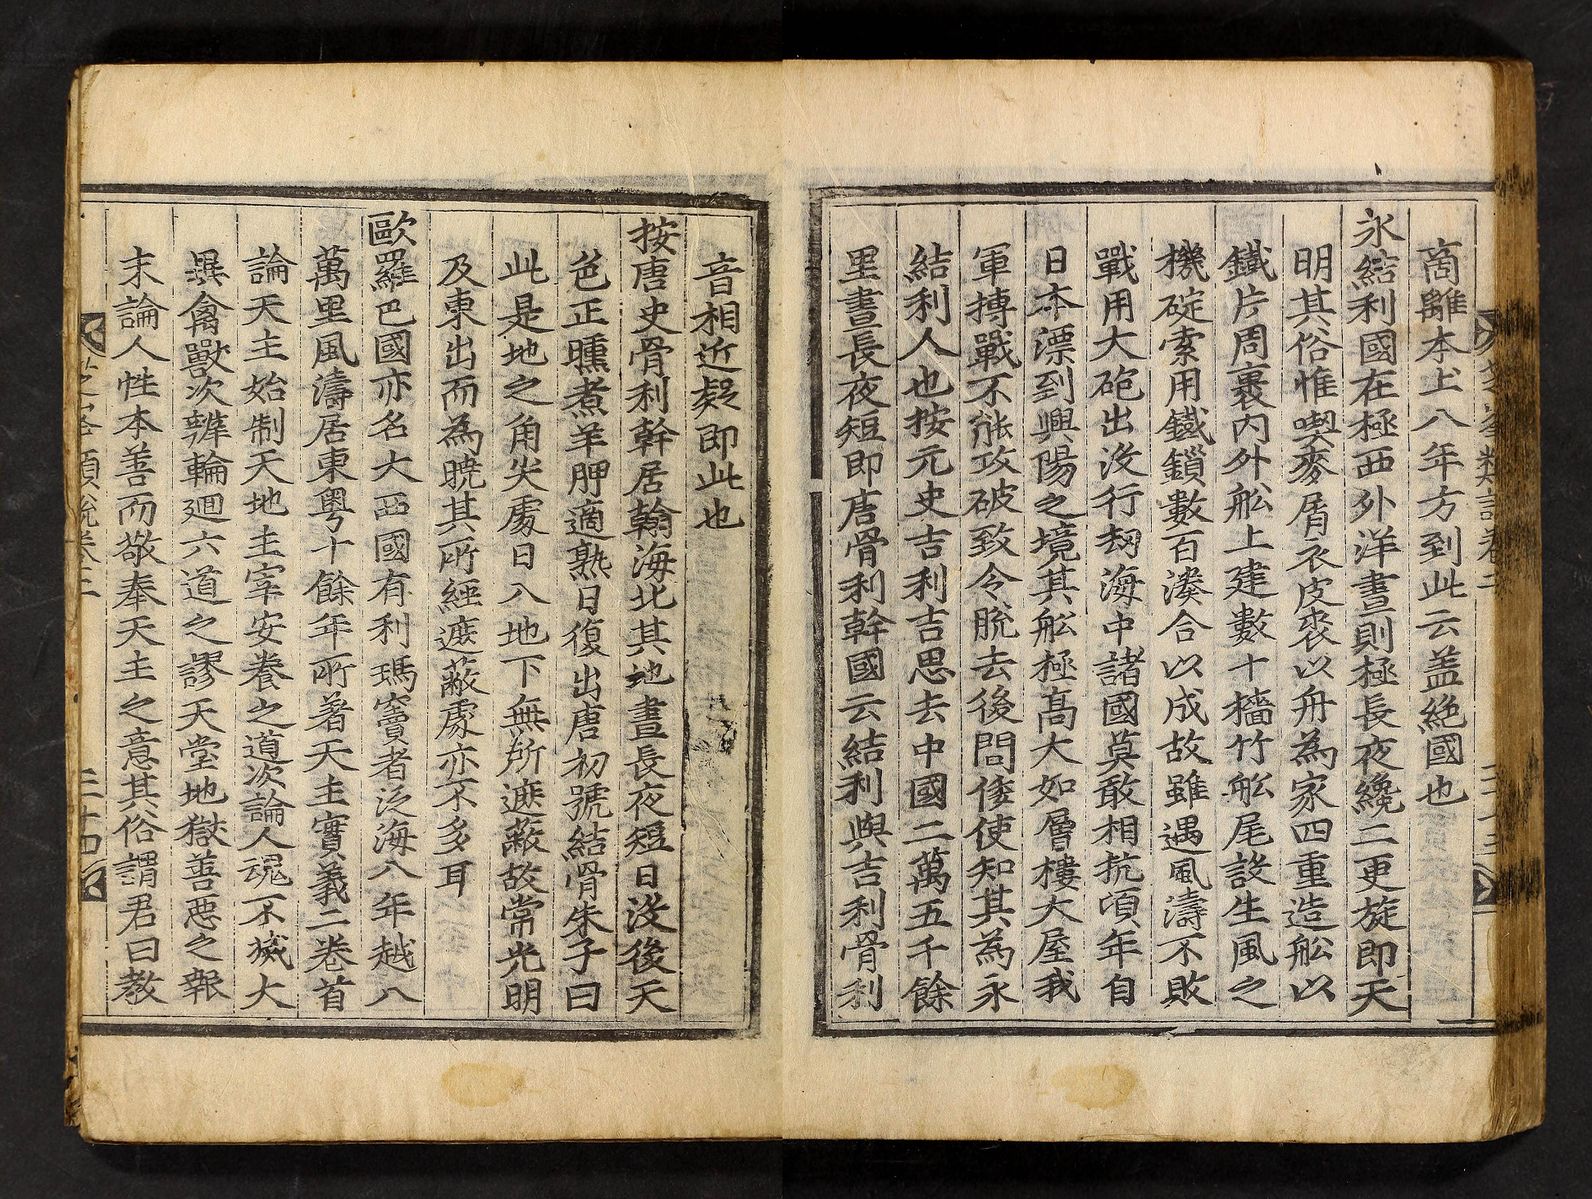 商離本土八年方到此云盖絶國也
永結利國在極西外洋晝則極長夜纔二更旋即天
明其俗惟喫麥屑衣皮裘以舟為家四重造舩以
鐵片周裹内外舩上建數十檣竹舩尾設生風之
機碇索用鐵鎖數百湊合以成故雖遇風濤不敗
戰用大砲出没行刼海中諸國莫敢相抗頃年自
日本漂到興陽之境其舩極高大如層樓大屋我
軍搏戰不能攻破致令脱去後問倭使知其為永
結利人也按元史吉利吉思去中國二萬五千餘
里晝長夜短即唐骨利幹國云結利與吉利骨利
芝峯類說卷二
三十三
音相近疑即此也
按唐史骨利幹居翰海北其地晝長夜短日没後天
色正曛煮羊胛適熟日復出唐初號結骨朱子曰
此是地之角尖處日入地下無所遮蔽故常光明
及東出而為曉其所經遮蔽處亦不多耳
歐羅巴國亦名大西國有利瑪竇者泛海八年越八
萬里風濤居東粤十餘年所著天主實義二卷首
論天主始制天地主宰安養之道次論人魂不滅大
異禽獸次辨輪廻六道之謬天堂地獄善惡之報
末論人性本善而敬奉天主之意其俗謂君曰教
芝峯類說卷二
三十四